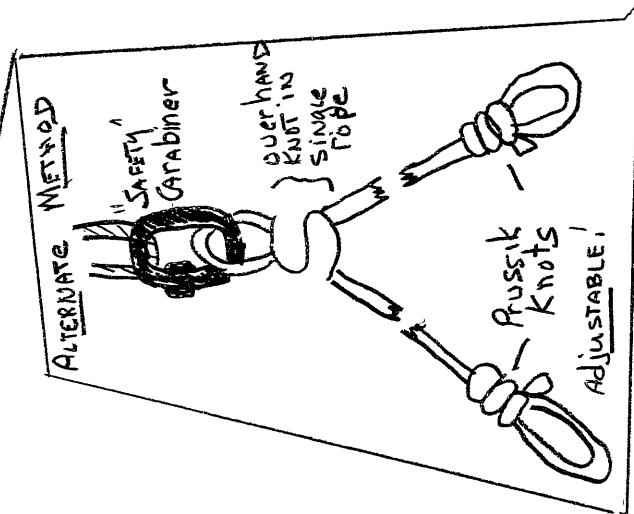 ALTERNATE METHOD
"SAFETY"
CARABINER
OVERHAND
KNOT IN
SINGLE
ROPE
PRUSSIK
KNOTS
ADJUSTABLE!